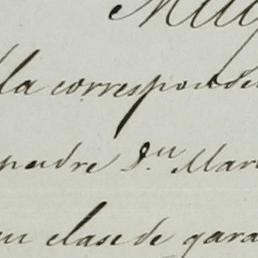 Muy
la corresponden
padre Dn. Mari
su clase de gara